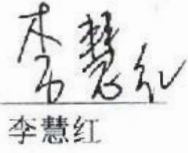 李慧红
李慧红